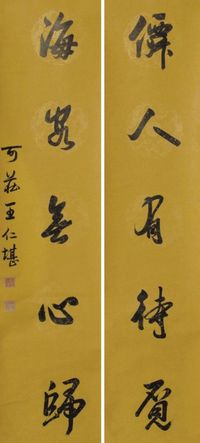 僊人有待
海客無心歸
可莊王仁堪